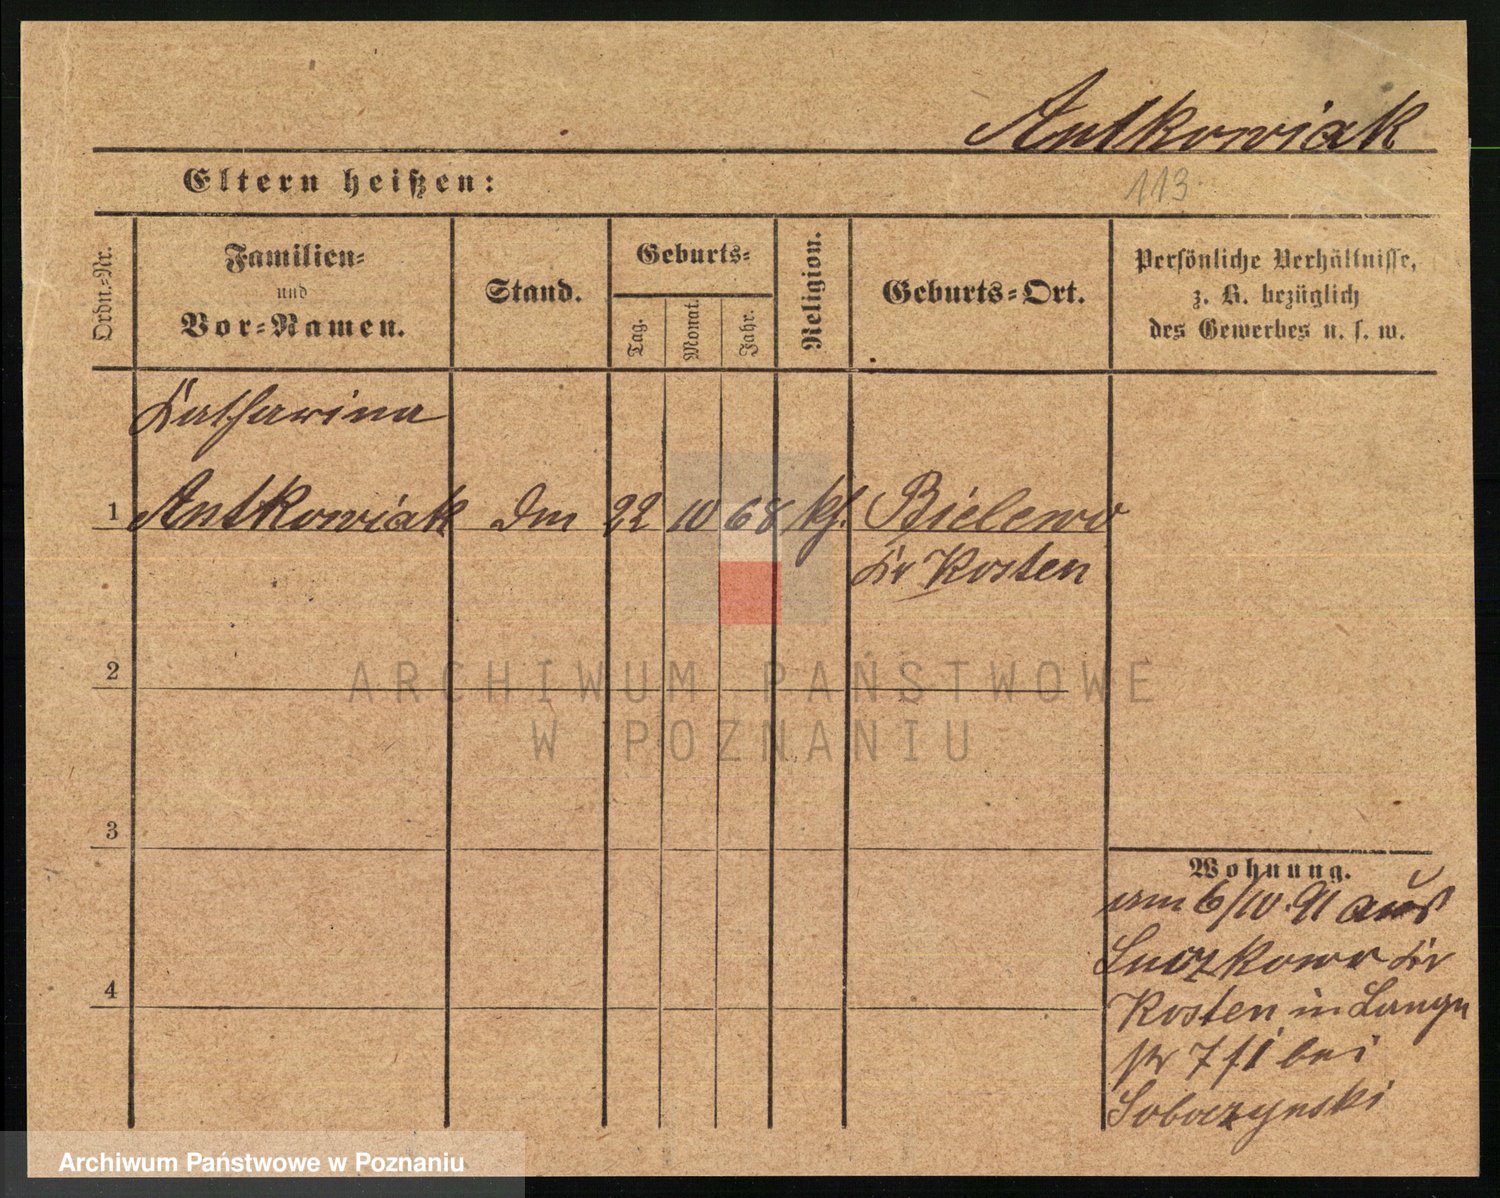 Antkowiak
Eltern heißen:
113
Ordn.-Nr.
Familien-
und
Vor-Namen.
Stand.
Geburts-
Tag.
Monat.
Jahr.
Religion.
Geburts-Ort.
Persönliche Verhältnisse,
z. B. bezüglich
des Gewerbes u. s. w.
Katharina
1 Antkowiak Dm 22 10 68 kf. Bielewo
Kr Kosten
2
ARCHIWUM PAŃSTWOWE
W POZNANIU
3
Wohnung.
am 6/10.91 aus
Kr
4
Kosten in Lange
str 7 f1 bei
Sobczynski
Archiwum Państwowe w Poznaniu